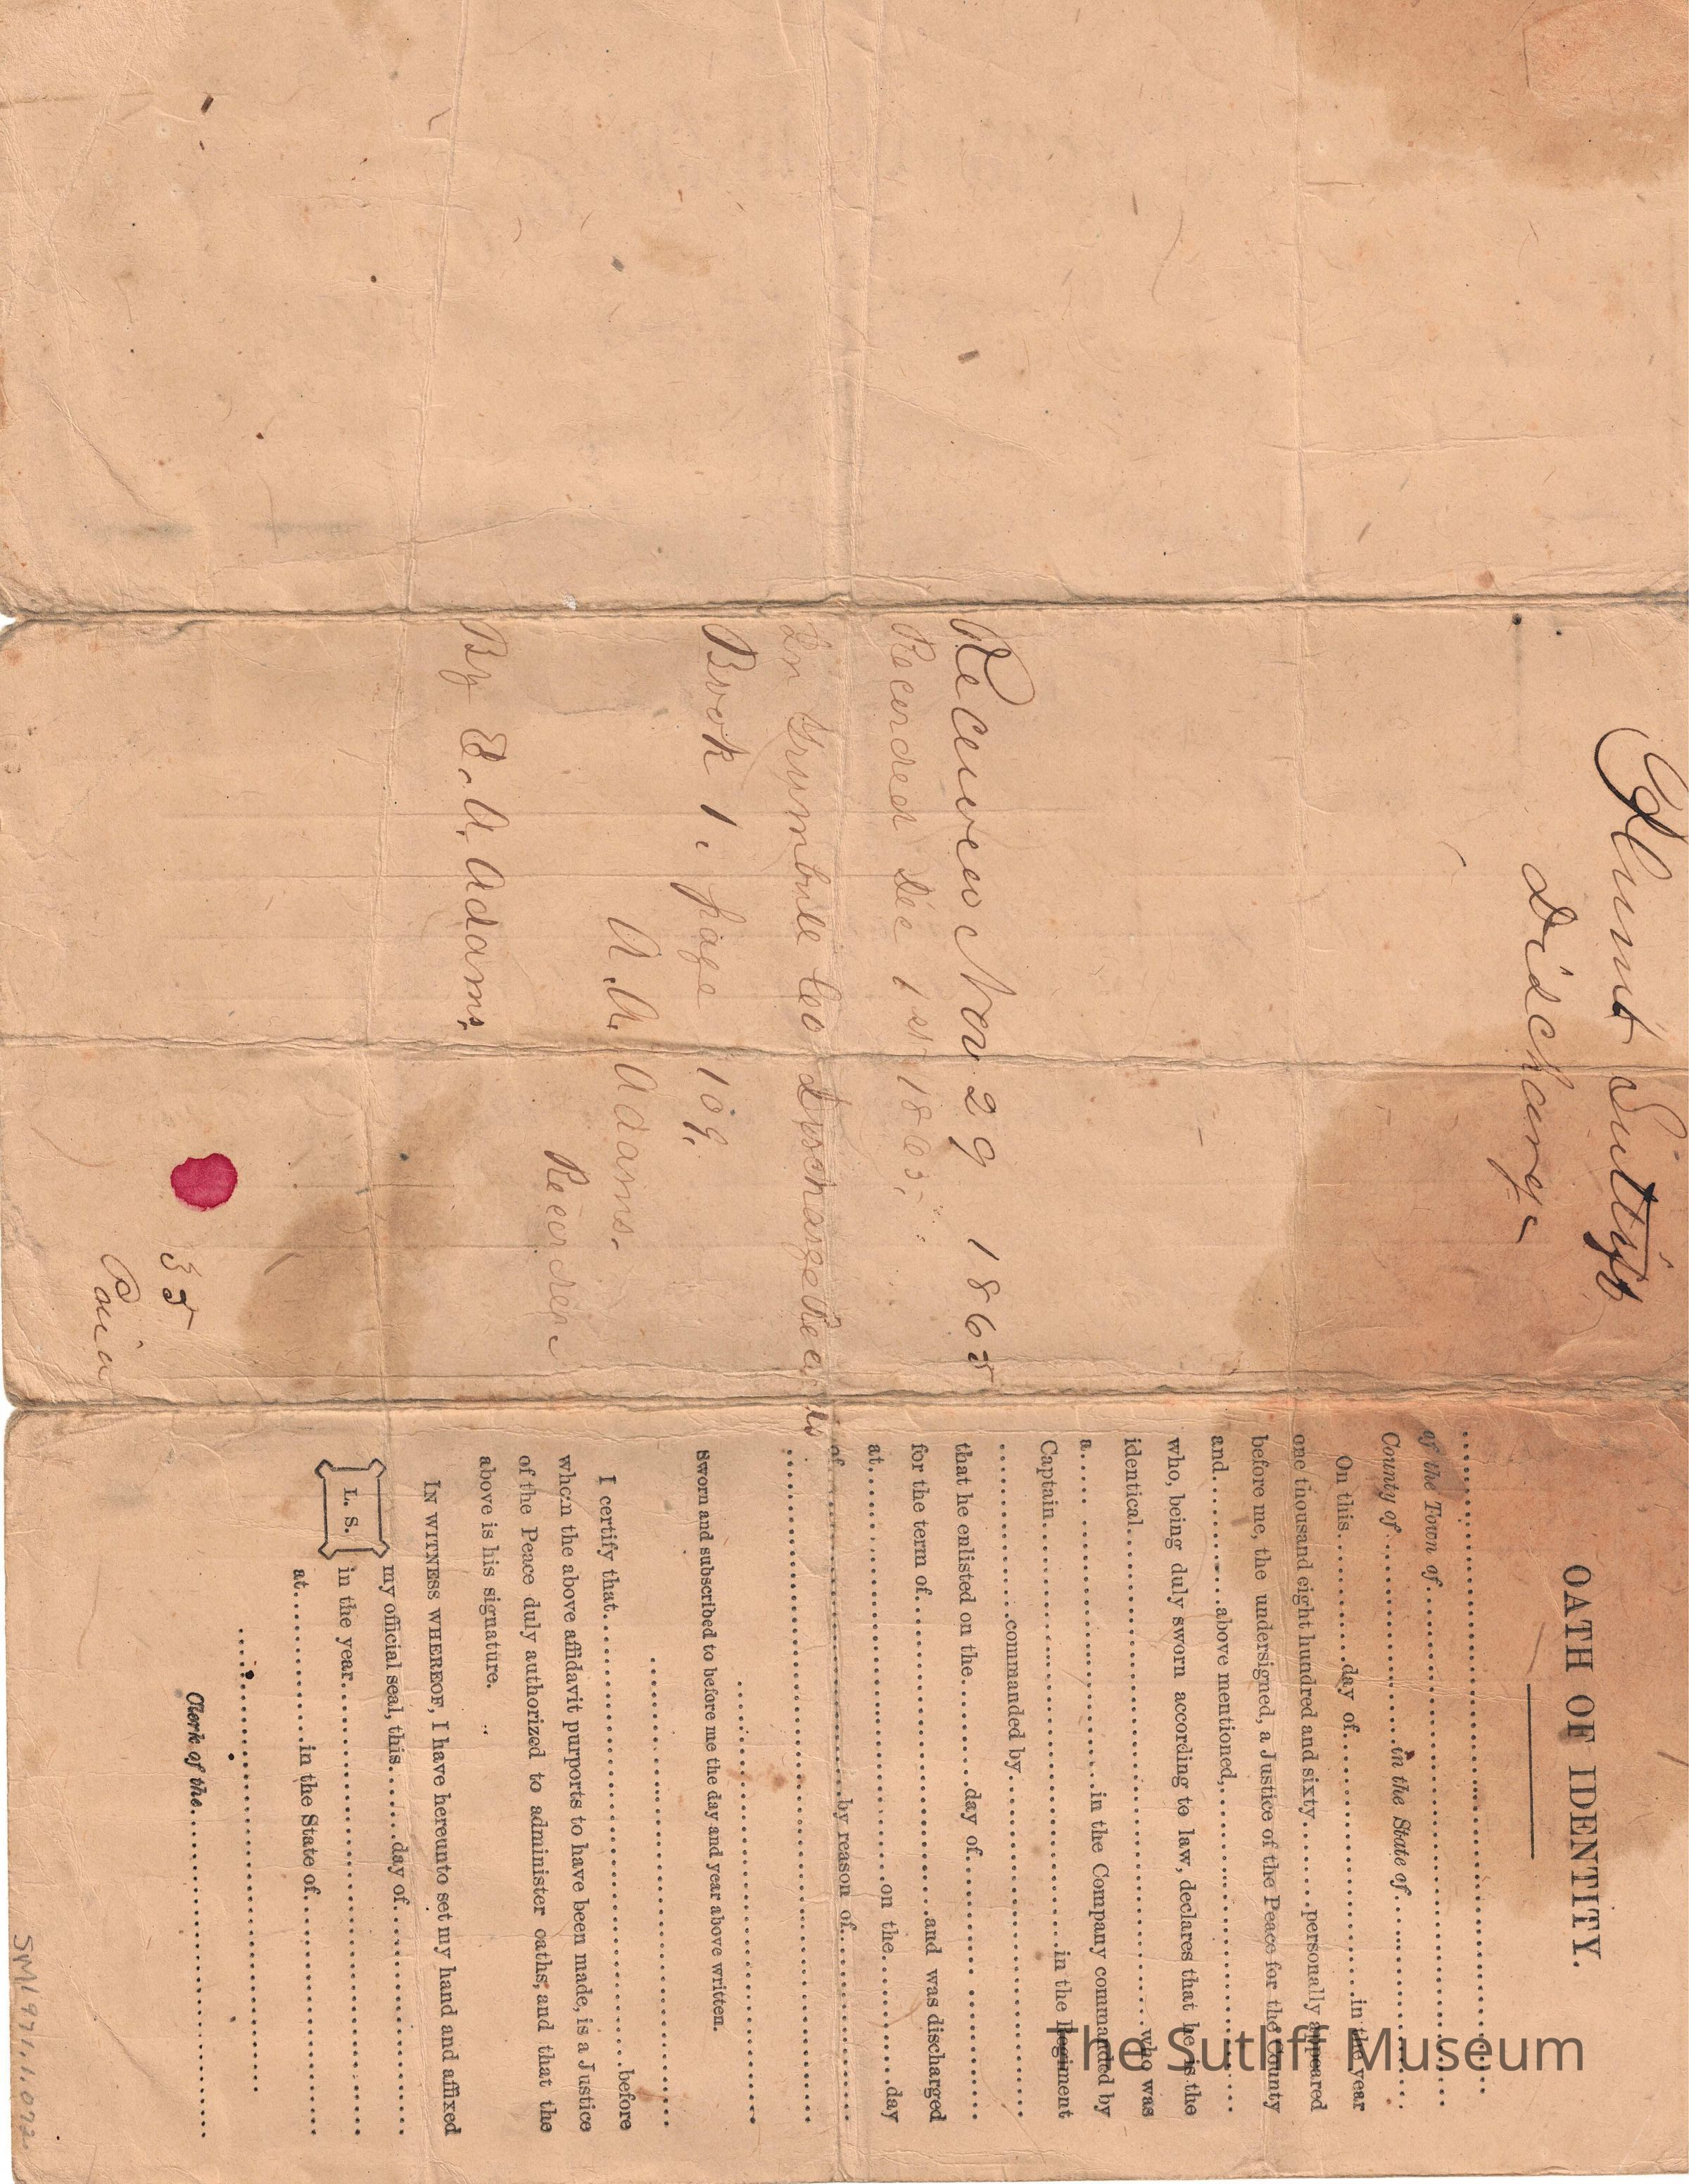 Phinny Sutliff
Discharge
Received Nov 29 1865
Recorded Dec 1st 1865.
In Trumbull Co Discharge Records
Book 1, page 109.
A. A. Adams.
Recorder
By E. A. Adams.
35
Paid
OATH OF IDENTITY.
of the Town of
County of in the State of
On this day of in the year
one thousand eight hundred and sixty personally appeared
before me, the undersigned, a Justice of the Peace for the County
and above mentioned,
who, being duly sworn according to law, declares that he is the
identical who was
a in the Company commanded by
Captain in the Regiment
commanded by
that he enlisted on the day of
for the term of and was discharged
at on the day
of by reason of
Sworn and subscribed to before me the day and year above written.
I certify that before
whom the above affidavit purports to have been made, is a Justice
of the Peace duly authorized to administer oaths, and that the
above is his signature.
IN WITNESS WHEREOF, I have hereunto set my hand and affixed
my official seal, this day of
L. S.
in the year
at in the State of
Clerk of the
SM1971.1.072
The Sutliff Museum